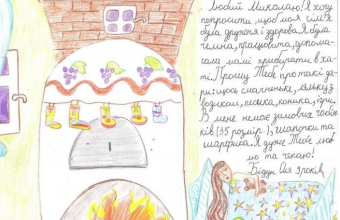 Любий Миколаю! Я хочу
попросити, щоб моя сім'я
була дружня і здорова. Я була
чемна, працювита, допома-
гала мамі прибирати в ха-
ті. Прошу Тебе про такі да-
ри: щось смачненьке, ляльку з
песика, коника, ігри.
В мене немає зимових чобіт-
ків (35 розмір), шапочки та
шарфика. Я дуже Тебе люб-
лю та чекаю!
років